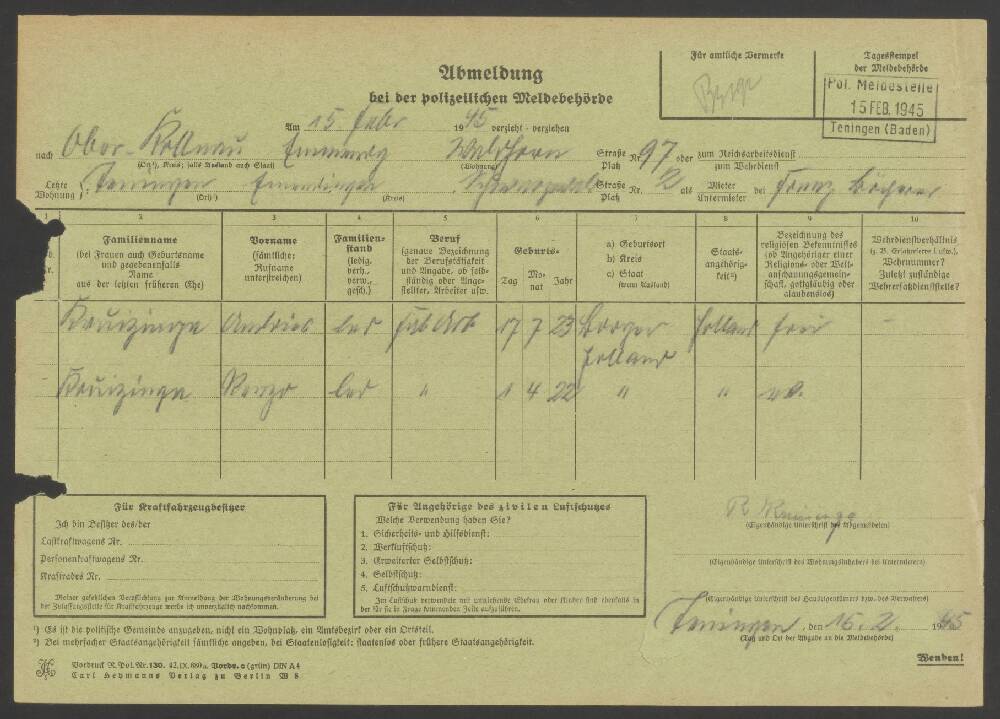 Für amtliche Vermerke
Tagesstempel
der Meldebehörde
Pol. Meldestelle
15 FEB. 1945
Teningen (Baden)
Abmeldung
bei der polizeilichen Meldebehörde
Am 15 Febr 1945 verzieht - verziehen
nach Ober-Kollnau Waldhorn Straße Platz Nr. 97 oder zum Reichsarbeitsdienst zum Wehrdienst
(Ort¹), Kreis; falls Ausland auch Staat) (Wohnung)
Letzte Wohnung: Teningen Emmendingen Straße Platz Nr. 2 als Mieter Untermieter bei Franz
(Ort¹) (Kreis)
1 2 3 4 5 6 7 8 9 10
Familienname
(bei Frauen auch Geburtsname
und gegebenenfalls
Name
aus der letzten früheren Ehe)
Vorname
(sämtliche:
Rufname
unterstreichen)
Familien-
stand
(ledig,
verh.,
verw.,
gesch.)
Beruf
(genaue Bezeichnung
der Berufstätigkeit
und Angabe, ob selb-
ständig oder Ange-
stellter, Arbeiter usw.
Geburts-
Tag Mo-
nat Jahr
a) Geburtsort
b) Kreis
c) Staat
(wenn Ausland)
Staats-
angehörig-
keit²)
Bezeichnung des
religiösen Bekenntnisses
(ob Angehöriger einer
Religions- oder Welt-
anschauungsgemein-
schaft, gottgläubig oder
glaubenslos)
Wehrdienstverhältnis
Wehrnummer?
Zuletzt zuständige
Wehrersatzdienststelle?
Kruizinga Andries led 17 7 23 Borger Holland frei -
Holland
Kruizinga Renzo led " 1 4 22 " "
Für Kraftfahrzeugbesitzer
Ich bin Besitzer des/der
Lastkraftwagens Nr.
Personenkraftwagens Nr.
Kraftrades Nr.
Meiner gesetzlichen Verpflichtung zur Anmeldung der Wohnungsveränderung bei
der Zulassungsstelle für Kraftfahrzeuge werde ich unverzüglich nachkommen.
Für Angehörige des zivilen Luftschutzes
Welche Verwendung haben Sie?
1. Sicherheits- und Hilfsdienst:
2. Werkluftschutz:
3. Erweiterter Selbstschutz:
4. Selbstschutz:
5. Luftschutzwarndienst:
Im Luftschutz verwendete mit umziehende Ehefrau oder Kinder sind ebenfalls in
der für sie in Frage kommenden Zeile aufzuführen.
(Eigenhändige Unterschrift des Abgemeldeten)
(Eigenhändige Unterschrift des Wohnungsinhabers bei Untermietern)
(Eigenhändige Unterschrift des Hauseigentümers bzw. des Verwalters)
Teningen, den 16.2. 1945
(Tag und Ort der Abgabe an die Meldebehörde)
¹) Es ist die politische Gemeinde anzugeben, nicht ein Wohnplatz, ein Amtsbezirk oder ein Ortsteil.
²) Bei mehrfacher Staatsangehörigkeit sämtliche angeben, bei Staatenlosigkeit: staatenlos oder frühere Staatsangehörigkeit.
Wenden!
Vordruck R. Pol. Nr. 130. Vordr. c (grün) DIN A 4
Carl Heymanns Verlag zu Berlin W 8